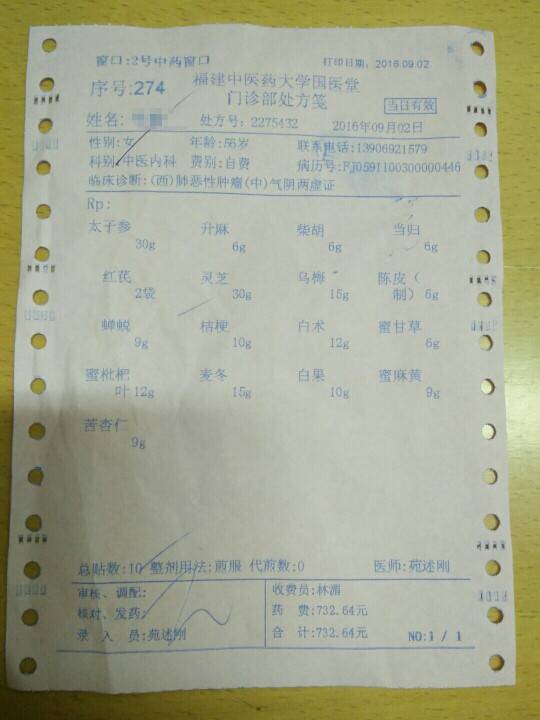 窗口:2号中药窗口
打印日期: 2016.09.02
序号:274
福建中医药大学国医堂
门诊部处方笺
当日有效
姓名:
处方号: 2275432
2016年09月02日
性别:女 年龄:56岁 联系电话:13906921579
科别:中医内科 费别:自费 病历号:FJ059I100300000446
临床诊断:(西)肺恶性肿瘤(中)气阴两虚证
Rp:
太子参 升麻 柴胡 当归
30g 6g 6g 6g
红芪 灵芝 乌梅 陈皮(
2袋 30g 15g 制) 6g
蝉蜕 桔梗 白术 蜜甘草
9g 10g 12g 6g
蜜枇杷 麦冬 白果 蜜麻黄
叶 12g 15g 10g 9g
苦杏仁
9g
总贴数:10 整剂用法:煎服 代煎数:0 医师:苑述刚
审核、调配:
收费员:林湄
核对、发药:
药 费:732.64元
录 入 员:苑述刚
合 计:732.64元
NO:1 / 1